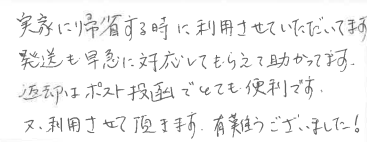 実家に帰省する時に利用させていただいてます
発送も早急に対応してもらえて助かってます.
返却はポスト投函でとても便利です.
又、利用させて頂きます. 有難うございました!